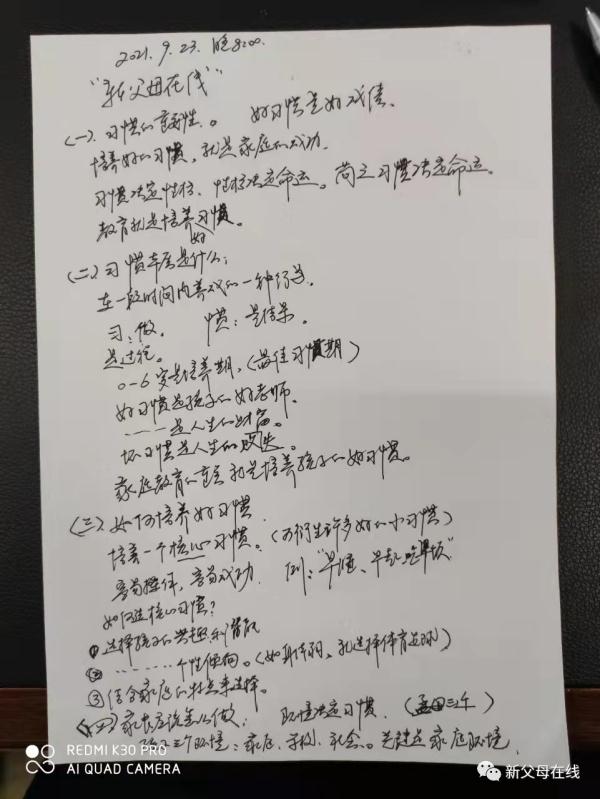 2021.9.23. 晚8:00.
"新父母在线"
(一).习惯的重要性。 好习惯是好成绩.
培养好的习惯,就是家庭的成功.
习惯决定性格、性格决定命运。简言之习惯决定命运。
教育就是培养习惯。
好
(二)习惯本质是什么:
在一段时间内养成的一种行为.
习:做. 惯:是结果.
是过程。
0-6岁是培养期,(最佳习惯期)
好习惯是孩子的好老师.
……是人生的财富。
坏习惯是人生的损失。
家庭教育的重点就是培养孩子的好习惯。
(三)如何培养好习惯
培养一个核心习惯。(可衍生许多好的小习惯)
成功. 例:"早睡、早起、吃早饭"
如何选核心习惯?
①选择孩子的兴趣和潜能
② ……个性倾向。(如身体弱,就选择体育运动)
③结合家庭的特点来选择。
(四)家长应该怎么做: 环境决定习惯. (孟母三迁)
三个环境:家庭、学校、社会、关键是家庭环境.
REDMI K30 PRO
AI QUAD CAMERA
新父母在线